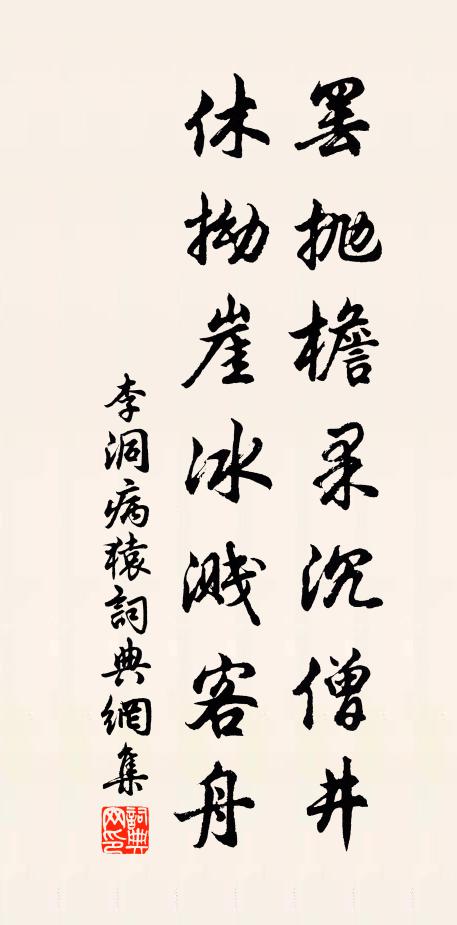 罢抛檐果沉僧井
休拗崖冰溅客舟
李洞病猿詞典網集
詞典网印